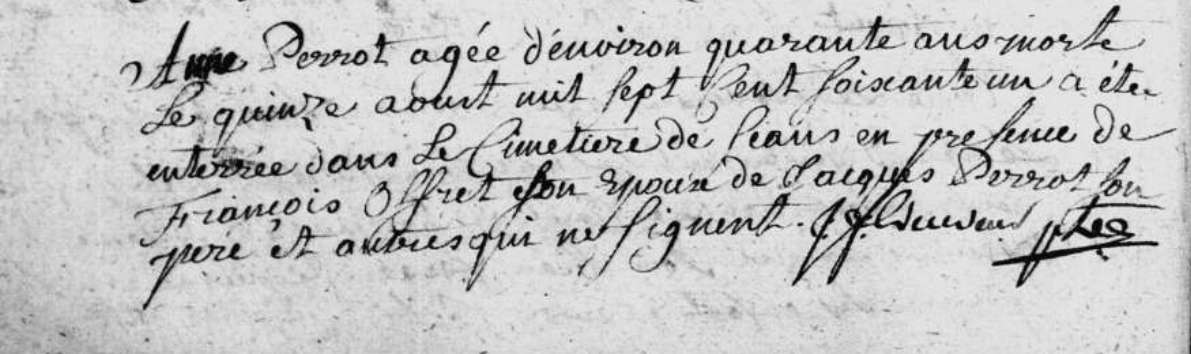 Anne Perrot agée d'énviron quarante ans morte
Le quinze aoust mil sept Cent soixante un a été
enterrée dans Le Cimetiere de Ceans en presence de
François Offret son Epoux de Jacques Perrot son
pere et autres qui ne signent. ptre